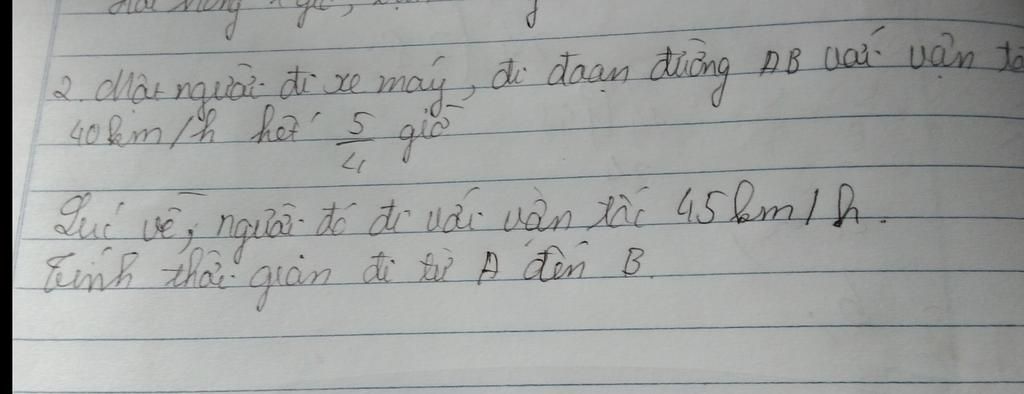 2. Một người đi xe máy, đi đoạn đường AB với vận tố
40km/h hết 5/4 giờ
Lúc về, người đó đi với vận tốc 45km/h.
Tính thời gian đi từ A đến B.